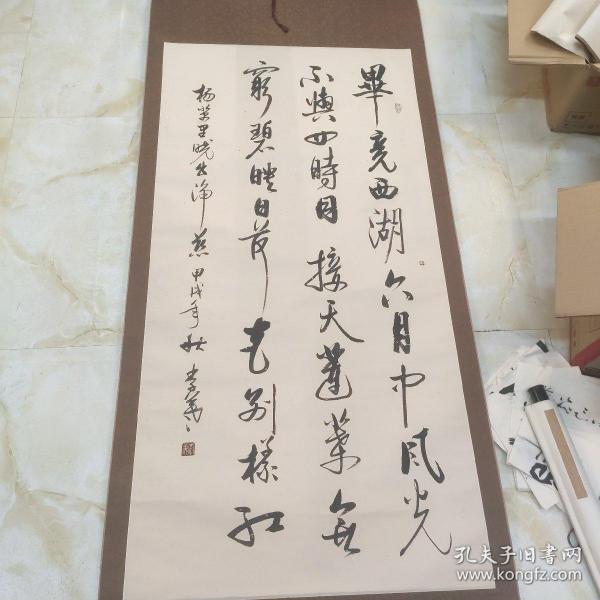 畢竟西湖六月中風光
不與四時同接天蓮葉無
窮碧映日荷花別樣紅
楊萬里曉出淨慈甲戌年秋李
孔夫子旧书网
www.kongfz.com